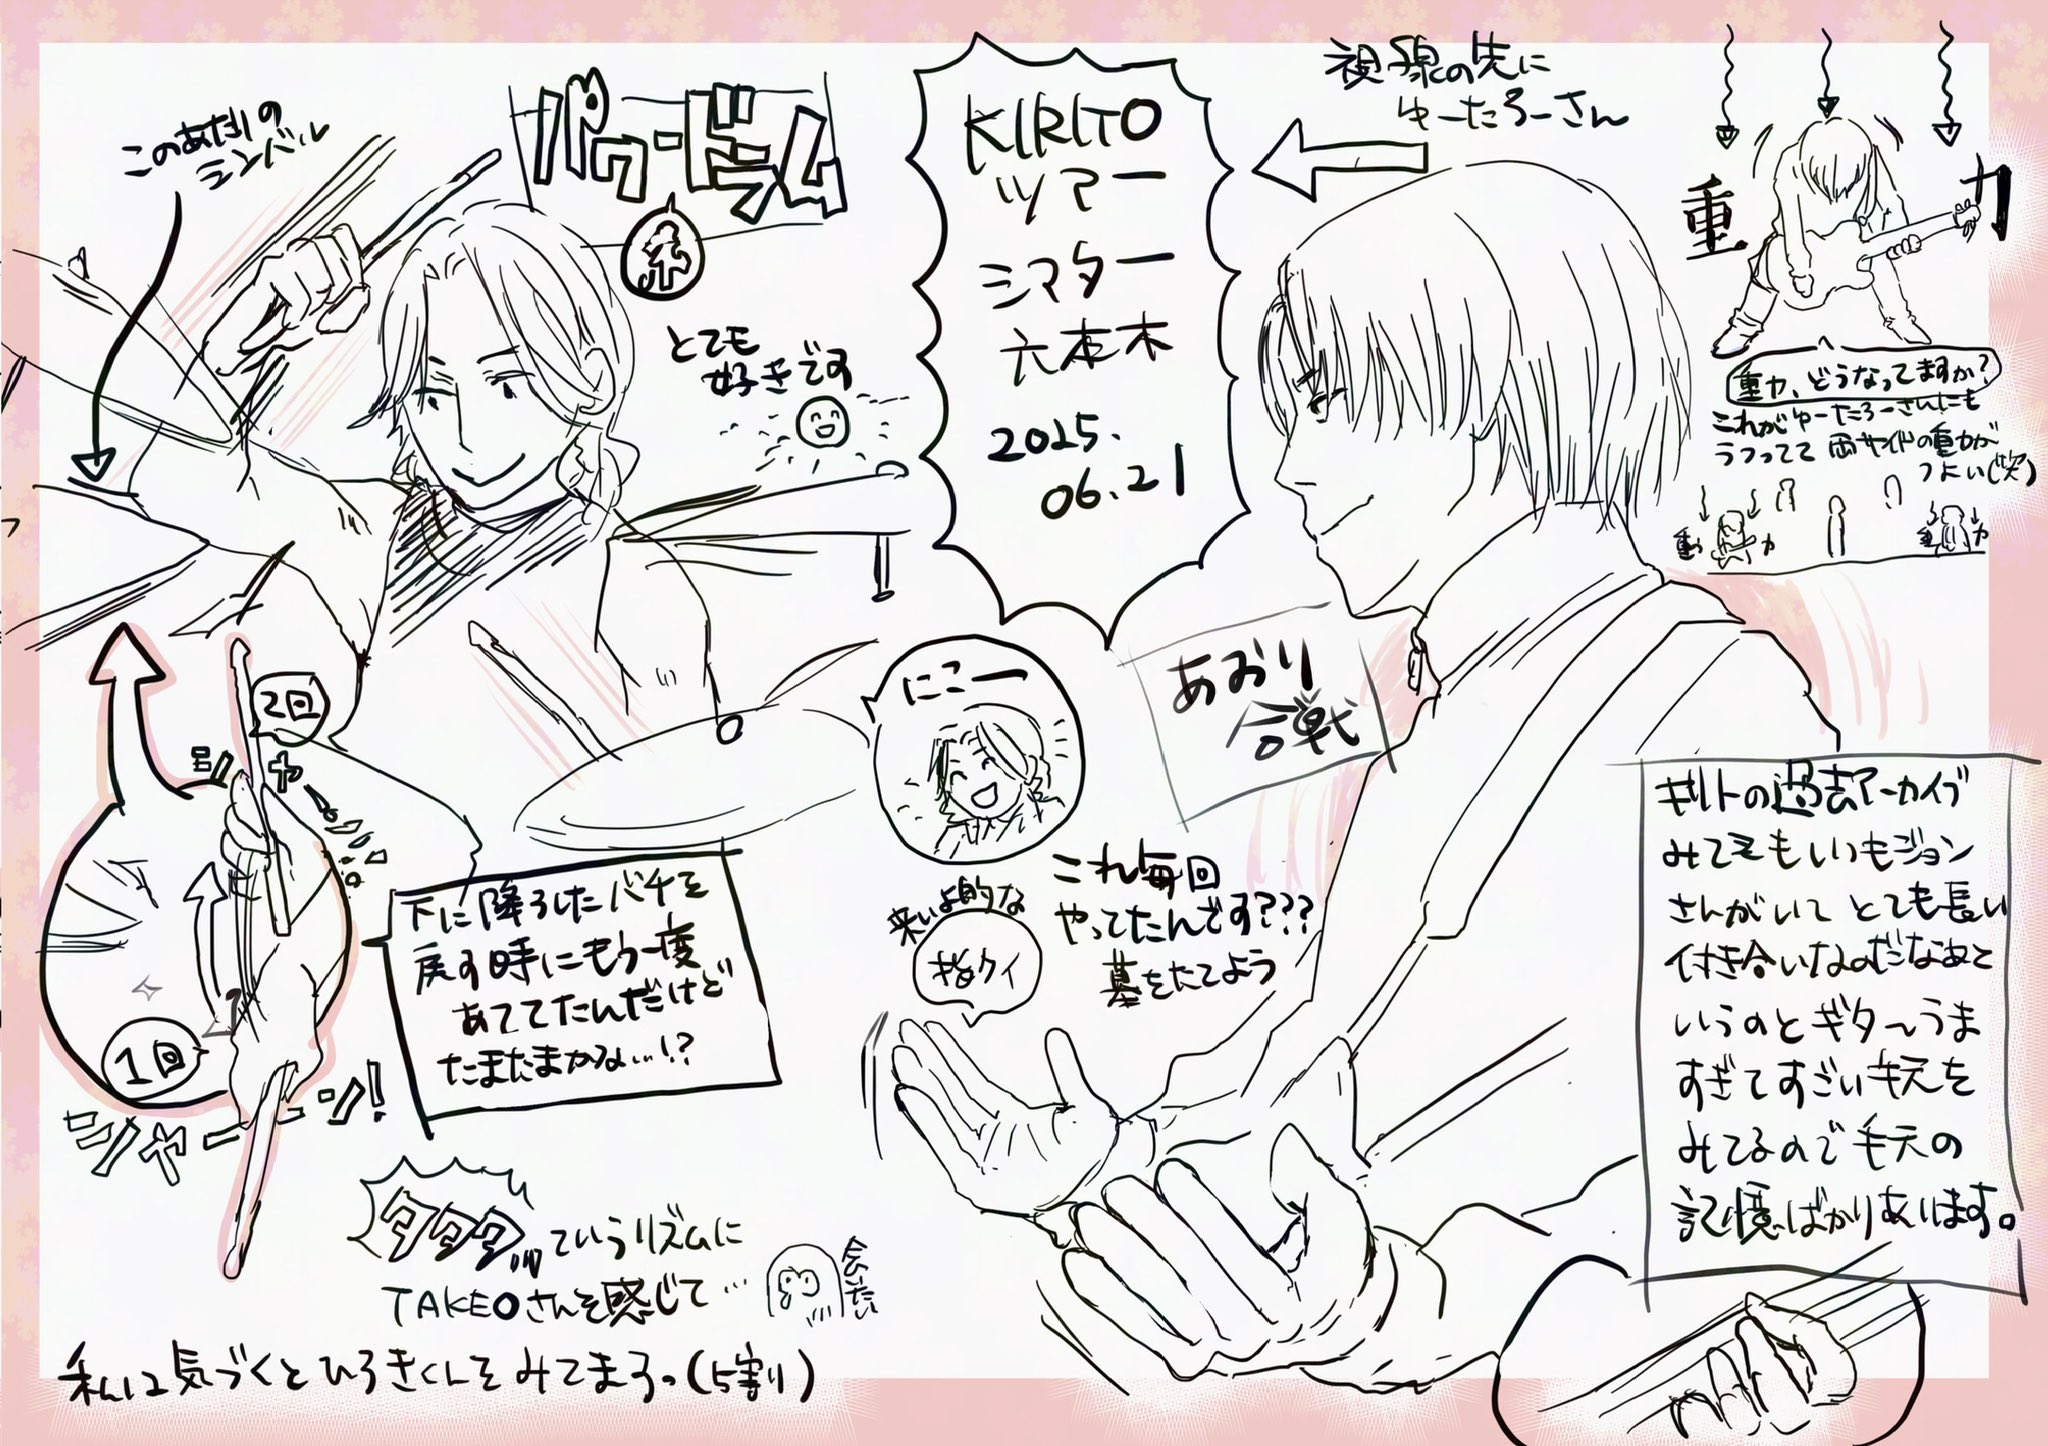 このあたりの
シンバル
パワードラム
とても
好きです
KIRITO
ツアー
シアター
六本木
2025.
06.21
視線の先に
ゆーたろーさん
重力
重力、どうなってますか?
これがゆーたろーさんにも
うつってて 両サイドの重力が
つよい(笑)
重力
重力
2回
シャーン!
1回
下に降ろしたバチを
戻す時にもう一度
あててたんだけど
たまたまかな…!?
にこー
あおり
合戦
これ毎回
やってたんです???
墓をたてよう
来いよ的な
指クイ
キリトの過去アーカイブ
みてもいつもジョン
さんがいて とても長い
付き合いなのだなあと
いうのとギターうま
すぎてすごい手元を
みてるので手元の
記憶ばかりあります。
タタタっていうリズムに
TAKEOさんを感じて…
会いたい
私は気づくとひろきくんをみてまろっ(5割り)